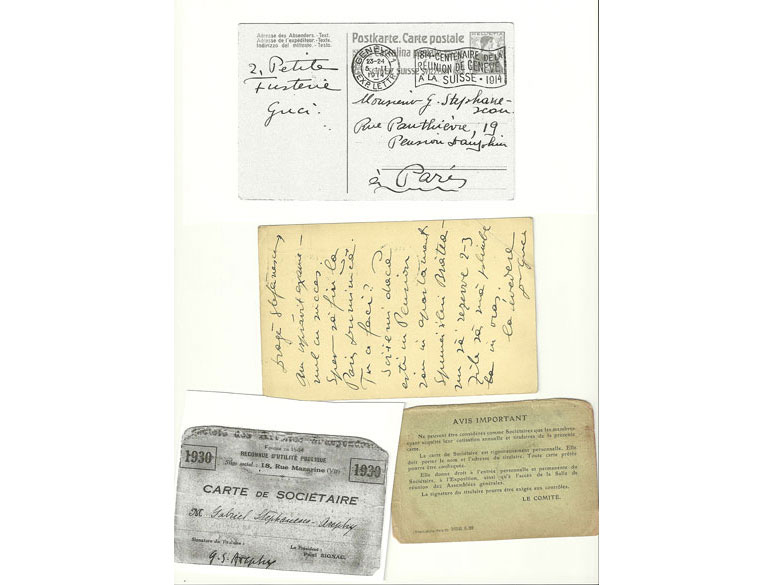 Adresse des Absenders. - Text.
Adresse de l'expéditeur. - Texte.
Indirizzo del mittente. - Testo.
Postkarte. Carte postale
GENÈVE 1
23-24
1914
EXP. LETTR.
1814 · CENTENAIRE DE LA
RÉUNION DE GENÈVE
A LA SUISSE · 1914
HELVETIA
2, Petite
Fusterie
Guci.
Monsieur G. Stephane-
scou.
Rue Panthièvre, 19
Pension Dauphin
à Paris
Dragă Stefănescu,
Am isprăvit exame-
nul cu succes.
Sper să fiu la
Paris Duminică.
Tu ce faci?
Scrie-mi dacă
este in Pension
sau in apartament
Spune-i lui Brătea-
nu să rezerve 2-3
zile să mă plimbe
in oraș.
La revedere
Guci
Société des Artistes Indépendants
RECONNUE D'UTILITÉ PUBLIQUE
1930
Siège social : 18, Rue Mazarine (VIe)
1930
CARTE DE SOCIÉTAIRE
M. Gabriel Stephanescu-Arephy
Signature du Titulaire :
Le Président :
Paul SIGNAC.
G. S. Arephy
AVIS IMPORTANT
Ne peuvent être considérés comme Sociétaires que les membres
ayant acquitté leur cotisation annuelle et titulaires de la présente
carte.
La carte de Sociétaire est rigoureusement personnelle. Elle
doit porter le nom et l'adresse du titulaire. Toute carte prêtée
pourra être confisquée.
Elle donne droit à l'entrée personnelle et permanente du
Sociétaire, à l'Exposition, ainsi qu'à l'accès de la Salle de
réunion des Assemblées générales.
La signature du titulaire pourra être exigée aux contrôles.
LE COMITÉ.